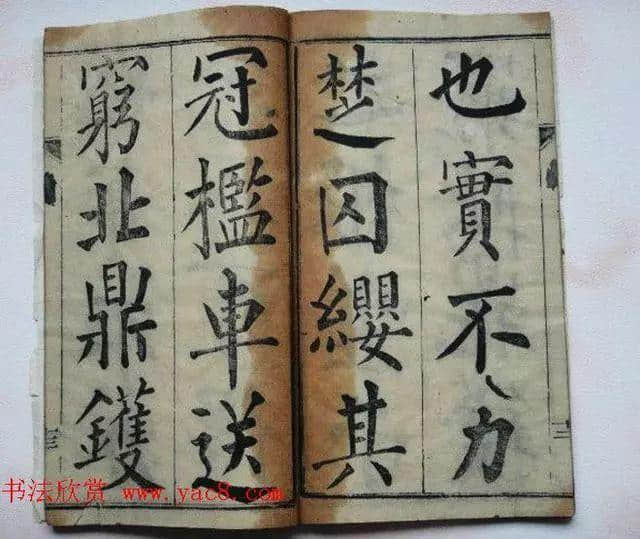 也實不力
楚囚纓其
冠檻車送
窮北鼎鑊
三
三
书法欣赏 www.yac8.com